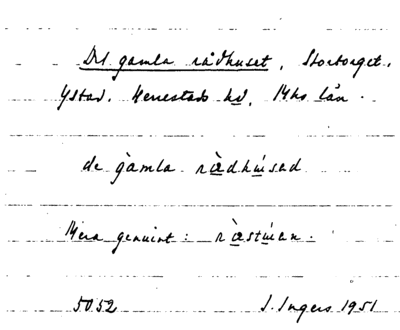 Det gamla rådhuset, Stortorget,
Ystad. Herrestads hd, Mhs län.
de gàmla ràdhúsed
Mera genuint: ràstúan.
5052 I. Ingers 1951